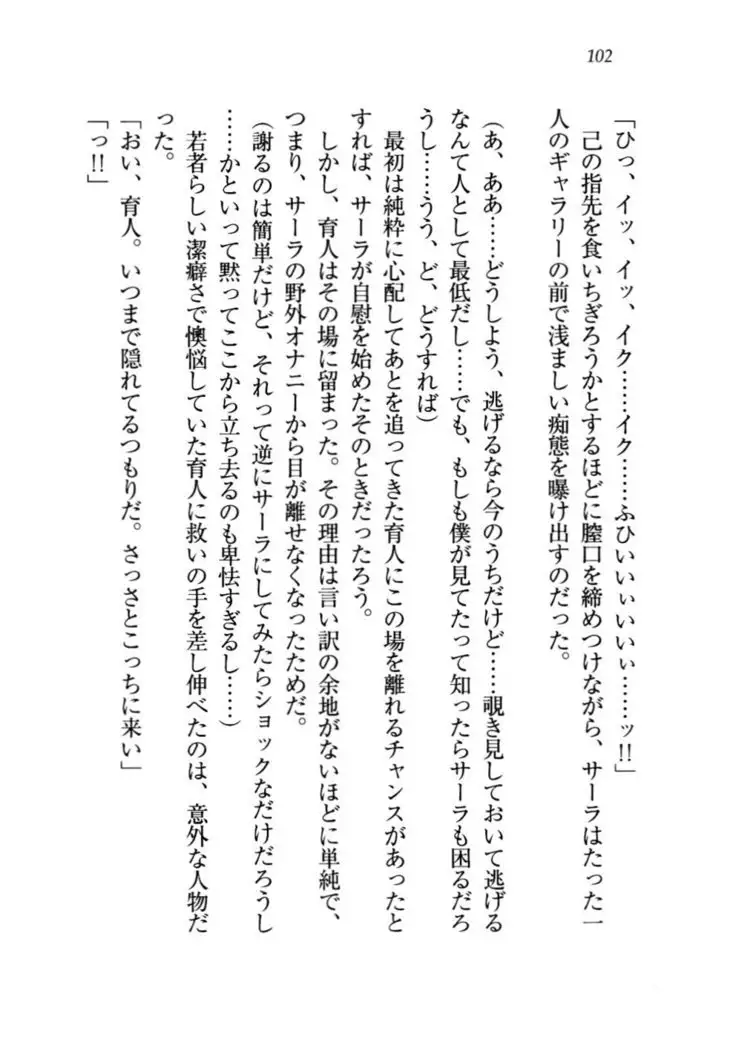 102
「ひっ、イッ、イッ、イク……イク……ふひいぃぃいいぃ……ッ!!」
　己の指先を食いちぎろうかとするほどに膣口を締めつけながら、サーラはたった一
人のギャラリーの前で浅ましい痴態を曝け出すのだった。
（あ、ああ……どうしよう、逃げるなら今のうちだけど……覗き見しておいて逃げる
なんて人として最低だし……でも、もしも僕が見てたって知ったらサーラも困るだろ
うし……うう、ど、どうすれば）
　最初は純粋に心配してあとを追ってきた育人にこの場を離れるチャンスがあったと
すれば、サーラが自慰を始めたそのときだったろう。
　しかし、育人はその場に留まった。その理由は言い訳の余地がないほどに単純で、
つまり、サーラの野外オナニーから目が離せなくなったためだ。
（謝るのは簡単だけど、それって逆にサーラにしてみたらショックなだけだろうし
……かといって黙ってここから立ち去るのも卑怯すぎるし……）
　若者らしい潔癖さで懊悩していた育人に救いの手を差し伸べたのは、意外な人物だ
った。
「おい、育人。いつまで隠れてるつもりだ。さっさとこっちに来い」
「っ!!」